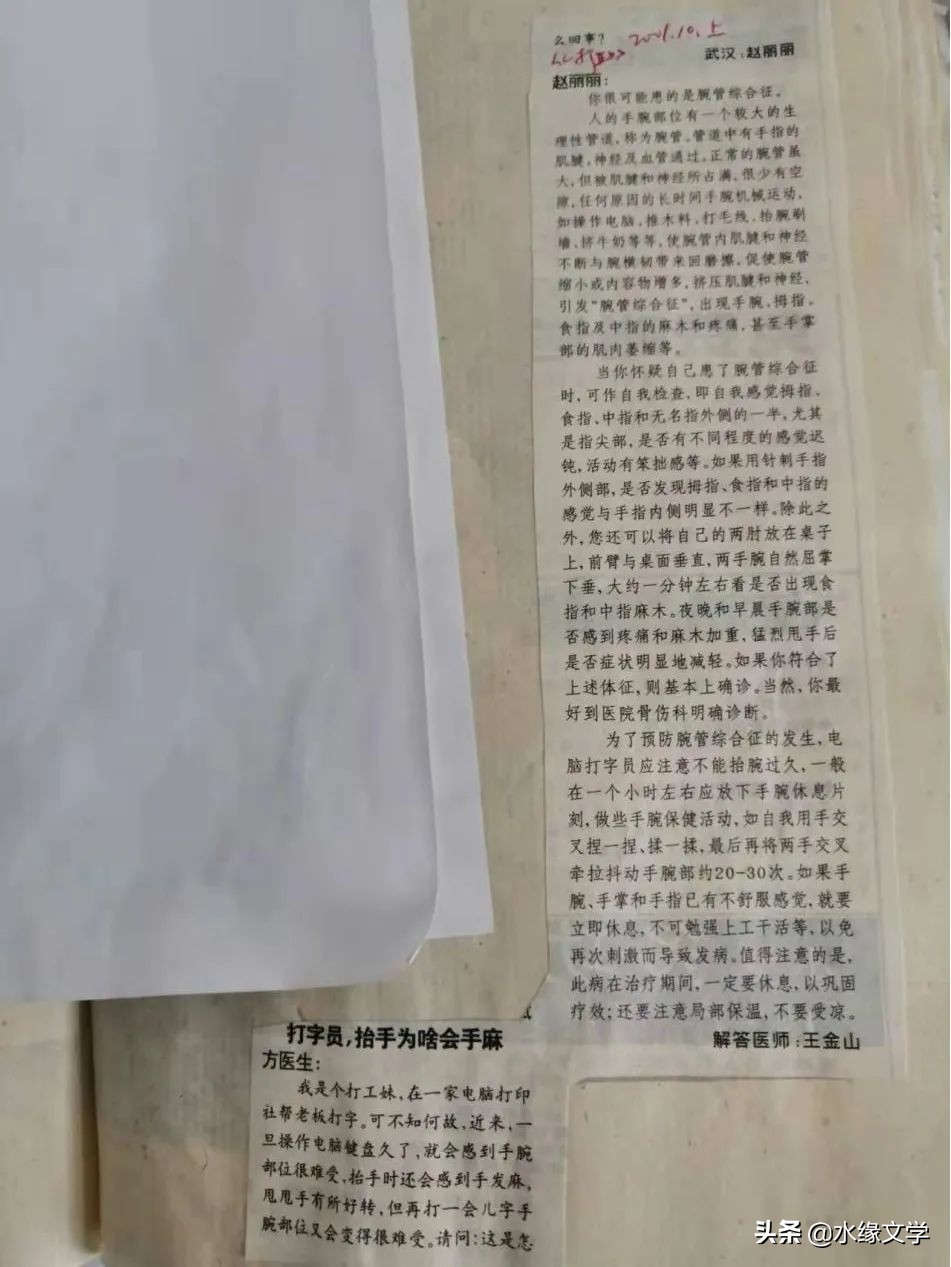 打字员,抬手为啥会手麻
方医生:
我是个打工妹,在一家电脑打印
社帮老板打字。可不知何故,近来,一
旦操作电脑键盘久了,就会感到手腕
部位很难受,抬手时还会感到手发麻,
甩甩手有所好转,但再打一会儿字手
腕部位又会变得很难受。请问:这是怎
么回事?
2001.10.上
武汉:赵丽丽
赵丽丽:
你很可能患的是腕管综合征。
人的手腕部位有一个较大的生
理性管道,称为腕管。管道中有手指的
肌腱,神经及血管通过。正常的腕管虽
大,但被肌腱和神经所占满,很少有空
隙,任何原因的长时间手腕机械运动,
如操作电脑、推木料、打毛线、抬腕刷
墙、挤牛奶等等,使腕管内肌腱和神经
不断与腕横韧带来回磨擦,促使腕管
缩小或内容物增多,挤压肌腱和神经,
引发“腕管综合征”,出现手腕、拇指、
食指及中指的麻木和疼痛,甚至手掌
部的肌肉萎缩等。
当你怀疑自己患了腕管综合征
时,可作自我检查,即自我感觉拇指、
食指、中指和无名指外侧的一半,尤其
是指尖部,是否有不同程度的感觉迟
钝,活动有笨拙感等。如果用针刺手指
外侧部,是否发现拇指、食指和中指的
感觉与手指内侧明显不一样。除此之
外,您还可以将自己的两肘放在桌子
上,前臂与桌面垂直,两手腕自然屈掌
下垂,大约一分钟左右看是否出现食
指和中指麻木。夜晚和早晨手腕部是
否感到疼痛和麻木加重,猛烈甩手后
是否症状明显地减轻。如果你符合了
上述体征,则基本上确诊。当然,你最
好到医院骨伤科明确诊断。
为了预防腕管综合征的发生,电
脑打字员应注意不能抬腕过久,一般
在一个小时左右应放下手腕休息片
刻,做些手腕保健活动,如自我用手交
叉捏一捏、揉一揉,最后再将两手交叉
牵拉抖动手腕部约20-30次。如果手
腕、手掌和手指已有不舒服感觉,就要
立即休息,不可勉强上工干活等,以免
再次刺激而导致发病。值得注意的是,
此病在治疗期间,一定要休息,以巩固
疗效;还要注意局部保温,不要受凉。
解答医师:王金山
头条 @水缘文学